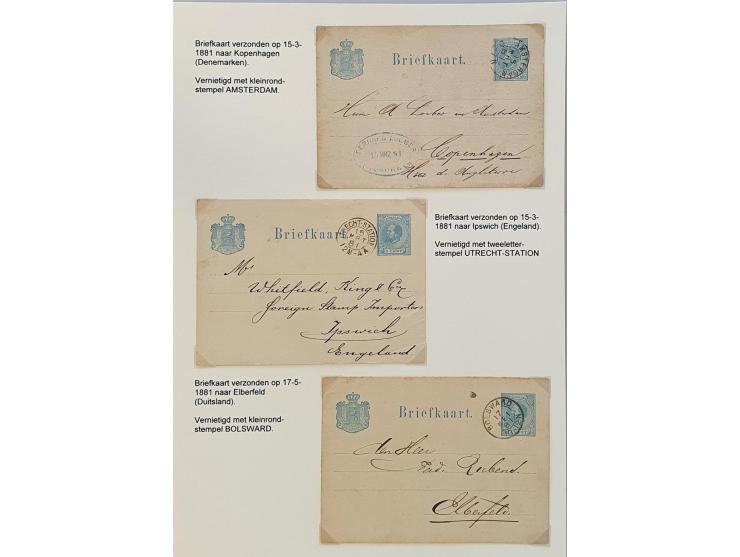 Briefkaart verzonden op 15-3-
1881 naar Kopenhagen
(Denemarken).
Vernietigd met kleinrond-
stempel AMSTERDAM.
Briefkaart.
AMSTERDAM
Herrn A Loeber aus Amsterdam
Copenhagen
Hotel d'Angleterre
Briefkaart verzonden op 15-3-
1881 naar Ipswich (Engeland).
Vernietigd met tweeletter-
stempel UTRECHT-STATION
Briefkaart.
UTRECHT-STATION
12M-4A
Mrs
Whitfield, King & Co
Foreign Stamp Importers
Ipswich
Engeland
Briefkaart verzonden op 17-5-
1881 naar Elberfeld
(Duitsland).
Vernietigd met kleinrond-
stempel BOLSWARD.
Briefkaart.
BOLSWARD
den Heer
Ferd. Rubens
Elberfeld.